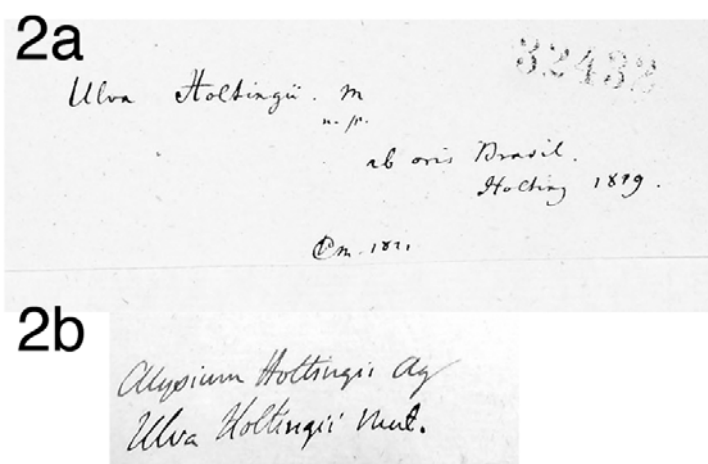 2a
32432
Ulva Holtingii. m
n. sp.
ab oris Brasil.
Holting 1819.
m. 1821.
2b
Alysium Holtingii Ag
Ulva Holtingii Mert.